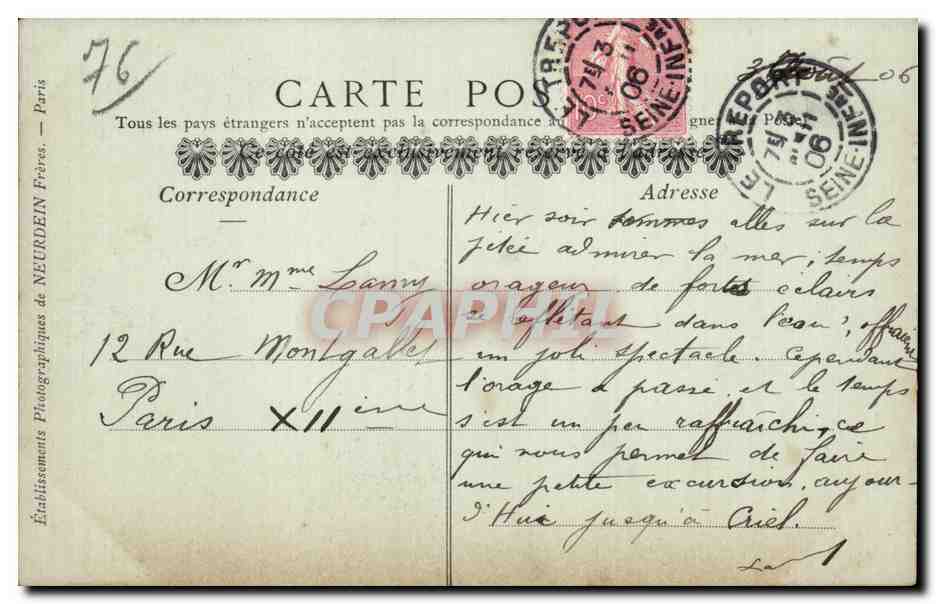 76
3 Août 06
CARTE POS
Tous les pays étrangers n'acceptent pas la correspondance au
Poste
LE TRÉPORT
7E 3 -11 06
SEINE-INFRE
LE TRÉPORT
7E 3 -11 06
SEINE-INFRE
Correspondance
Adresse
Mr. Mme Lamy
12 Rue Montgallet
Paris XIIème
Hier soir sommes alles sur la
jetée admirer la mer, temps
orageux de forts eclairs
se reflétant dans l'eau, offraient
un joli spectacle. Cependant
l'orage a passé et le temps
s'est un peu raffraîchi, ce
qui nous permet de faire
une petite excursion, aujour-
d'Hui jusqu'à Criel.
CPAPHIL
Établissements Photographiques de NEURDEIN Frères. — Paris